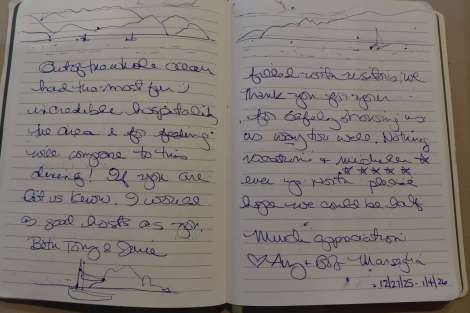 Out of the whole ocean
had the most fun!
incredible hospitality
the area & for feeling
welcome to this
diving! If you are
let us know. I would
as good hosts as you.
Both Tony &
filled with visitors, we
thank you for your
for safely showing us
as way too well. Nothing
& Michelle
ever up North please
hope we could be half
Much appreciation
♡ Amy +
12/27/25 - 1/4/26